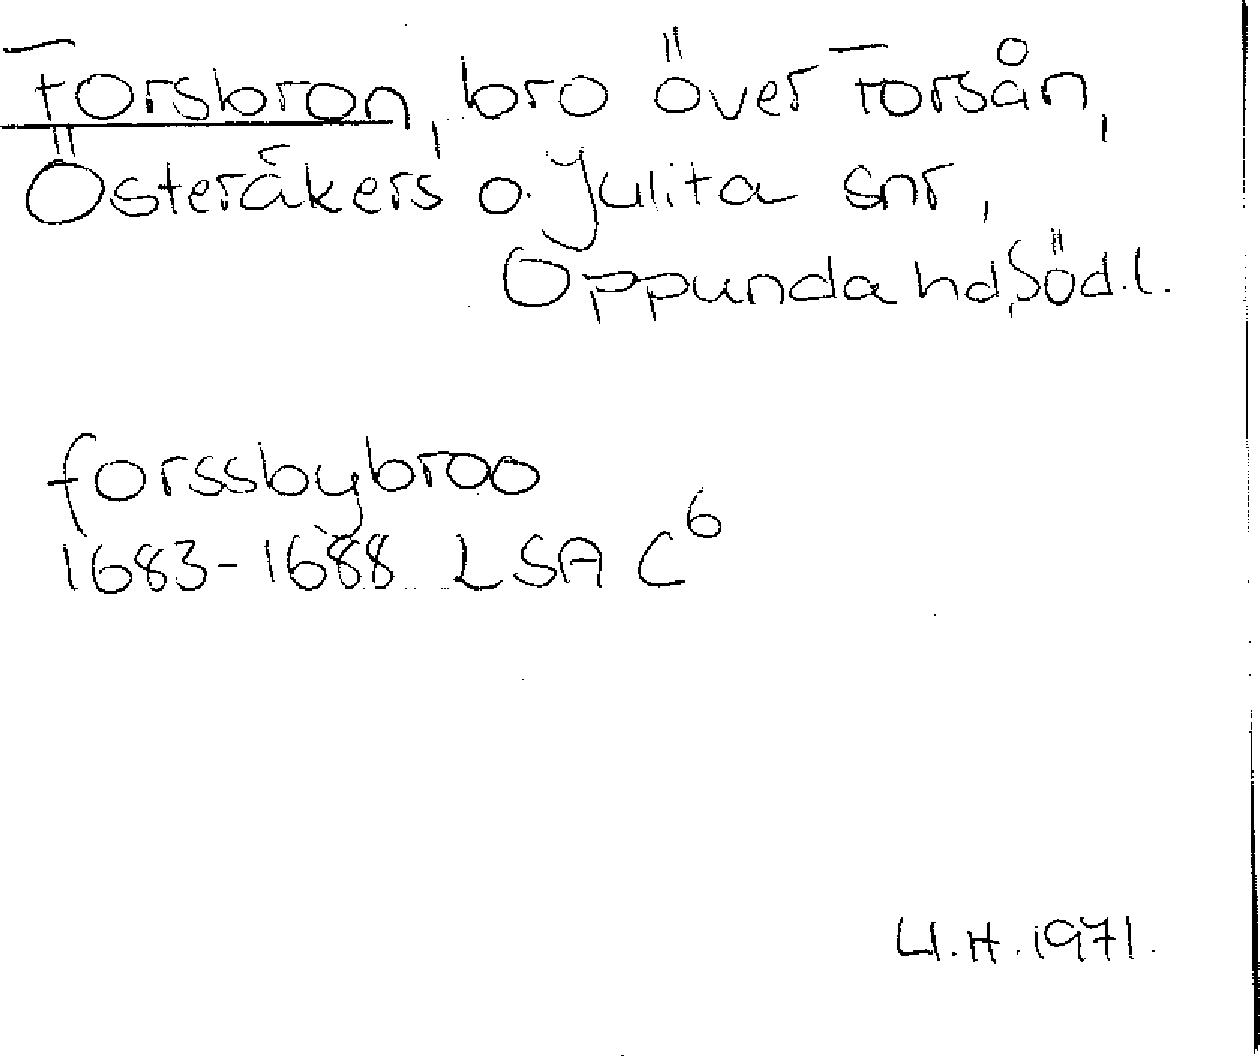 Forsbron, bro över Forsån,
Österåkers o. Julita snr,
Oppunda hd, Söd.l.
forssbybroo
1683-1688 LSA C6
U.H. 1971.